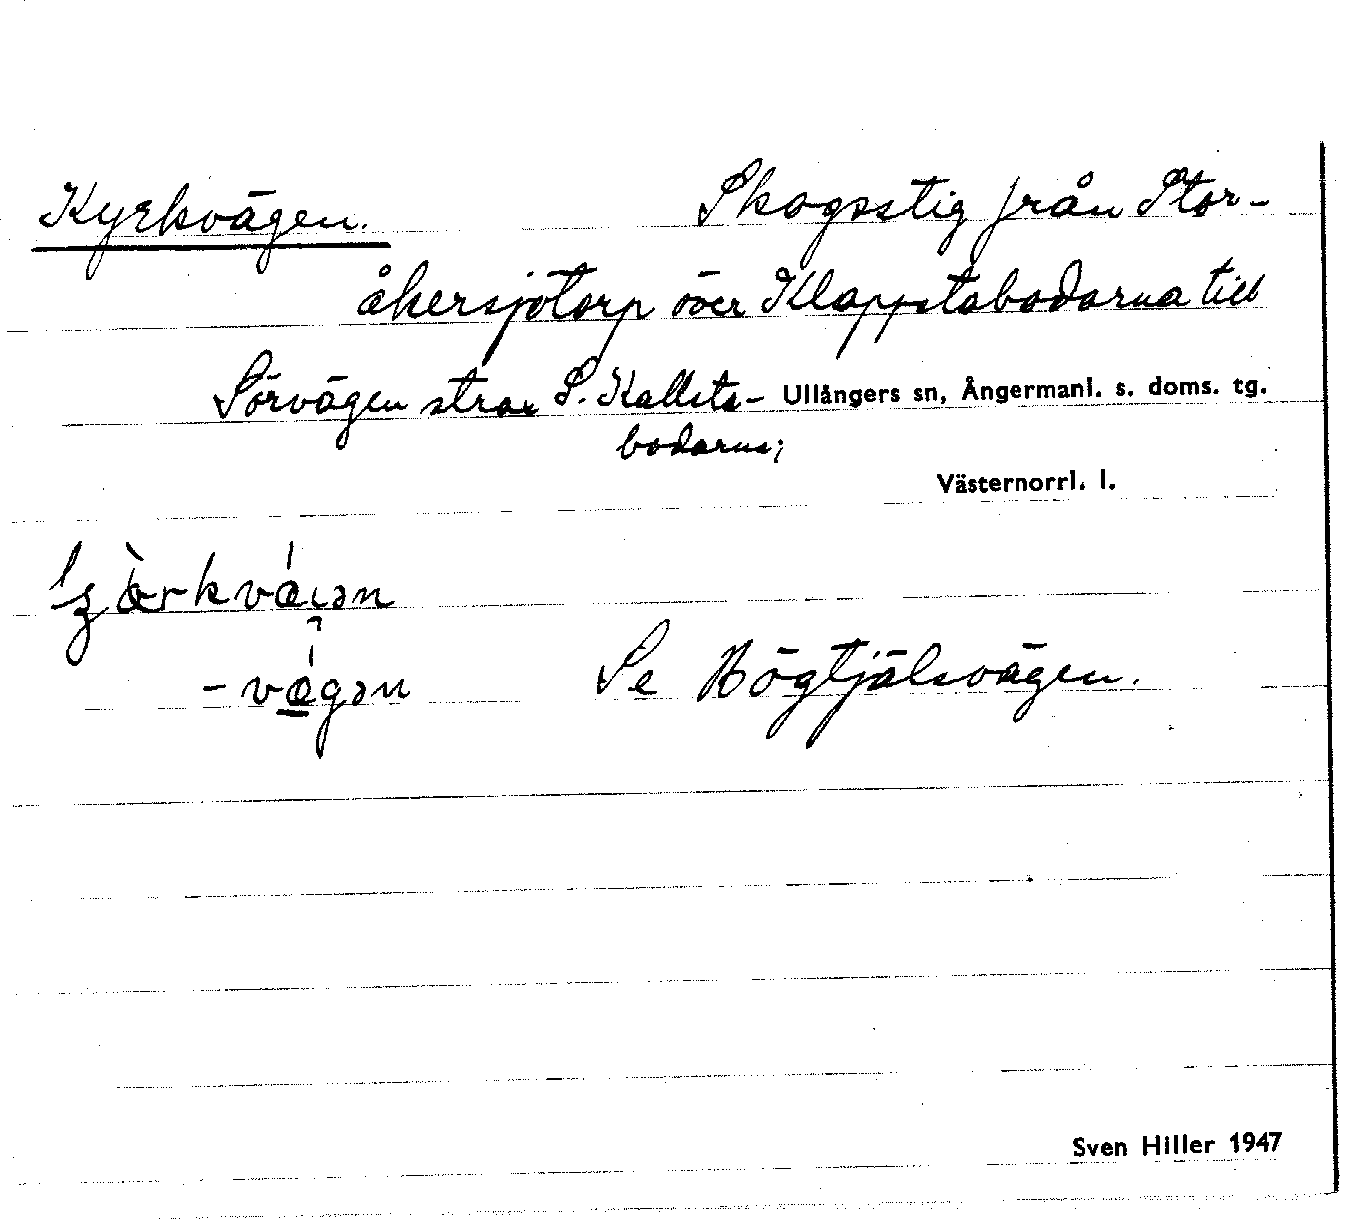 Kyrkvägen. Skogsstig från Stor-
åkersjötorp över Klappstabodarna till
Sörvägen strax S. Kallsta- Ullångers sn, Ångermanl. s. doms. tg.
bodarna;
Västernorrl. l.
-vægən Se Högtjälsvägen.
Sven Hiller 1947